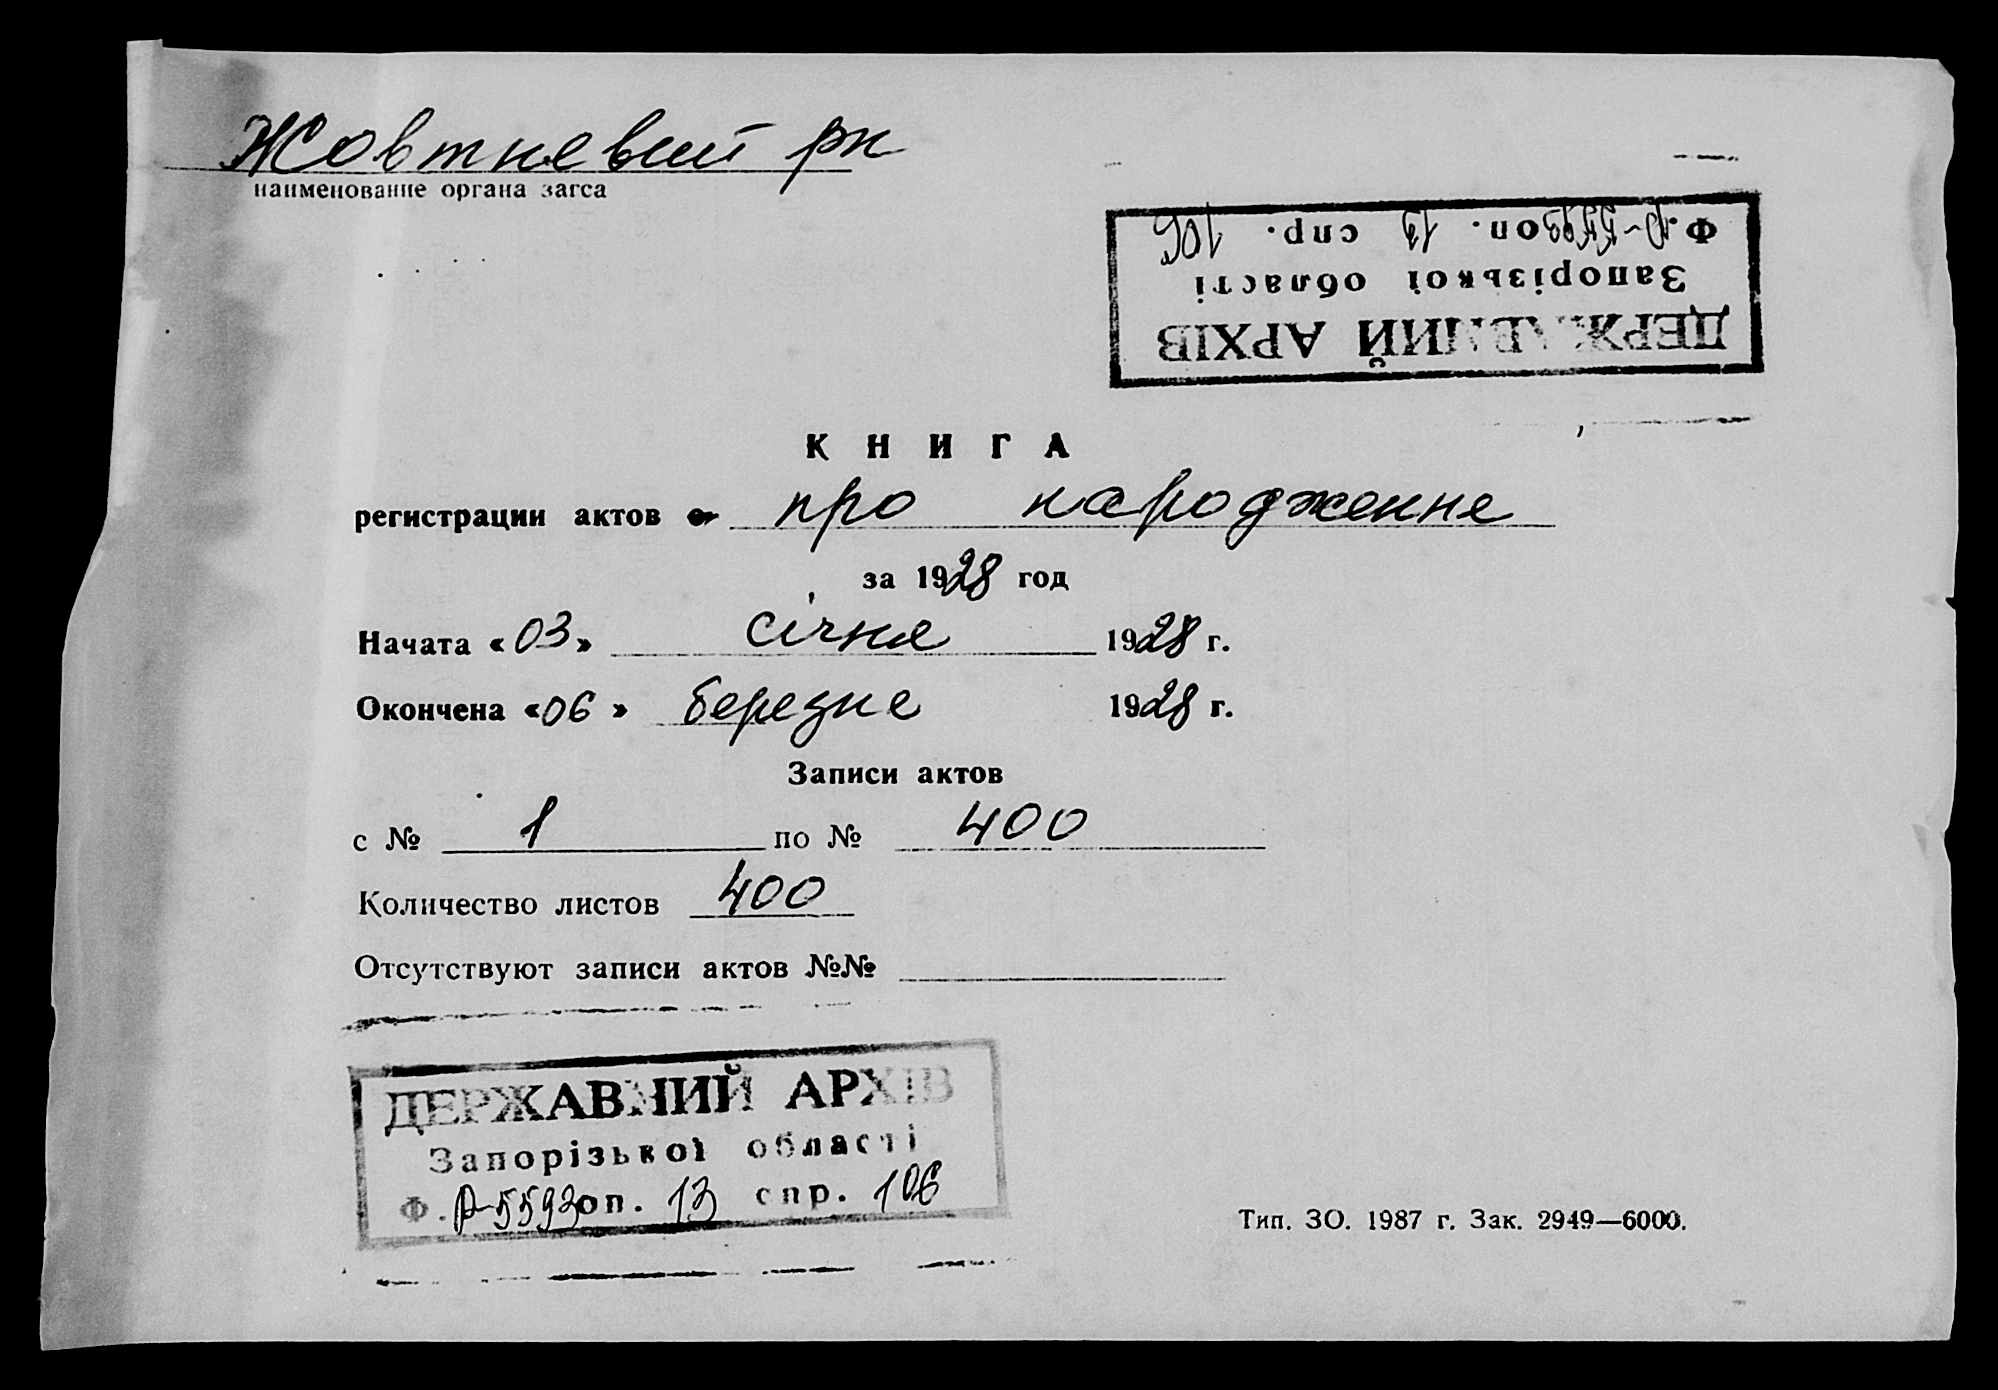 Жовтневий рн
наименование органа загса
Ф. Р-5593 оп. 13 спр. 106
Запорізької області
ДЕРЖАВНИЙ АРХІВ
КНИГА
регистрации актов о про народження
за 1928 год
Начата «03» січня 1928 г.
Окончена «06» березня 1928 г.
Записи актов
с № 1 по № 400
Количество листов 400
Отсутствуют записи актов №№
ДЕРЖАВНИЙ АРХІВ
Запорізької області
Ф. Р-5593 оп. 13 спр. 106
Тип. ЗО. 1987 г. Зак. 2949—6000.